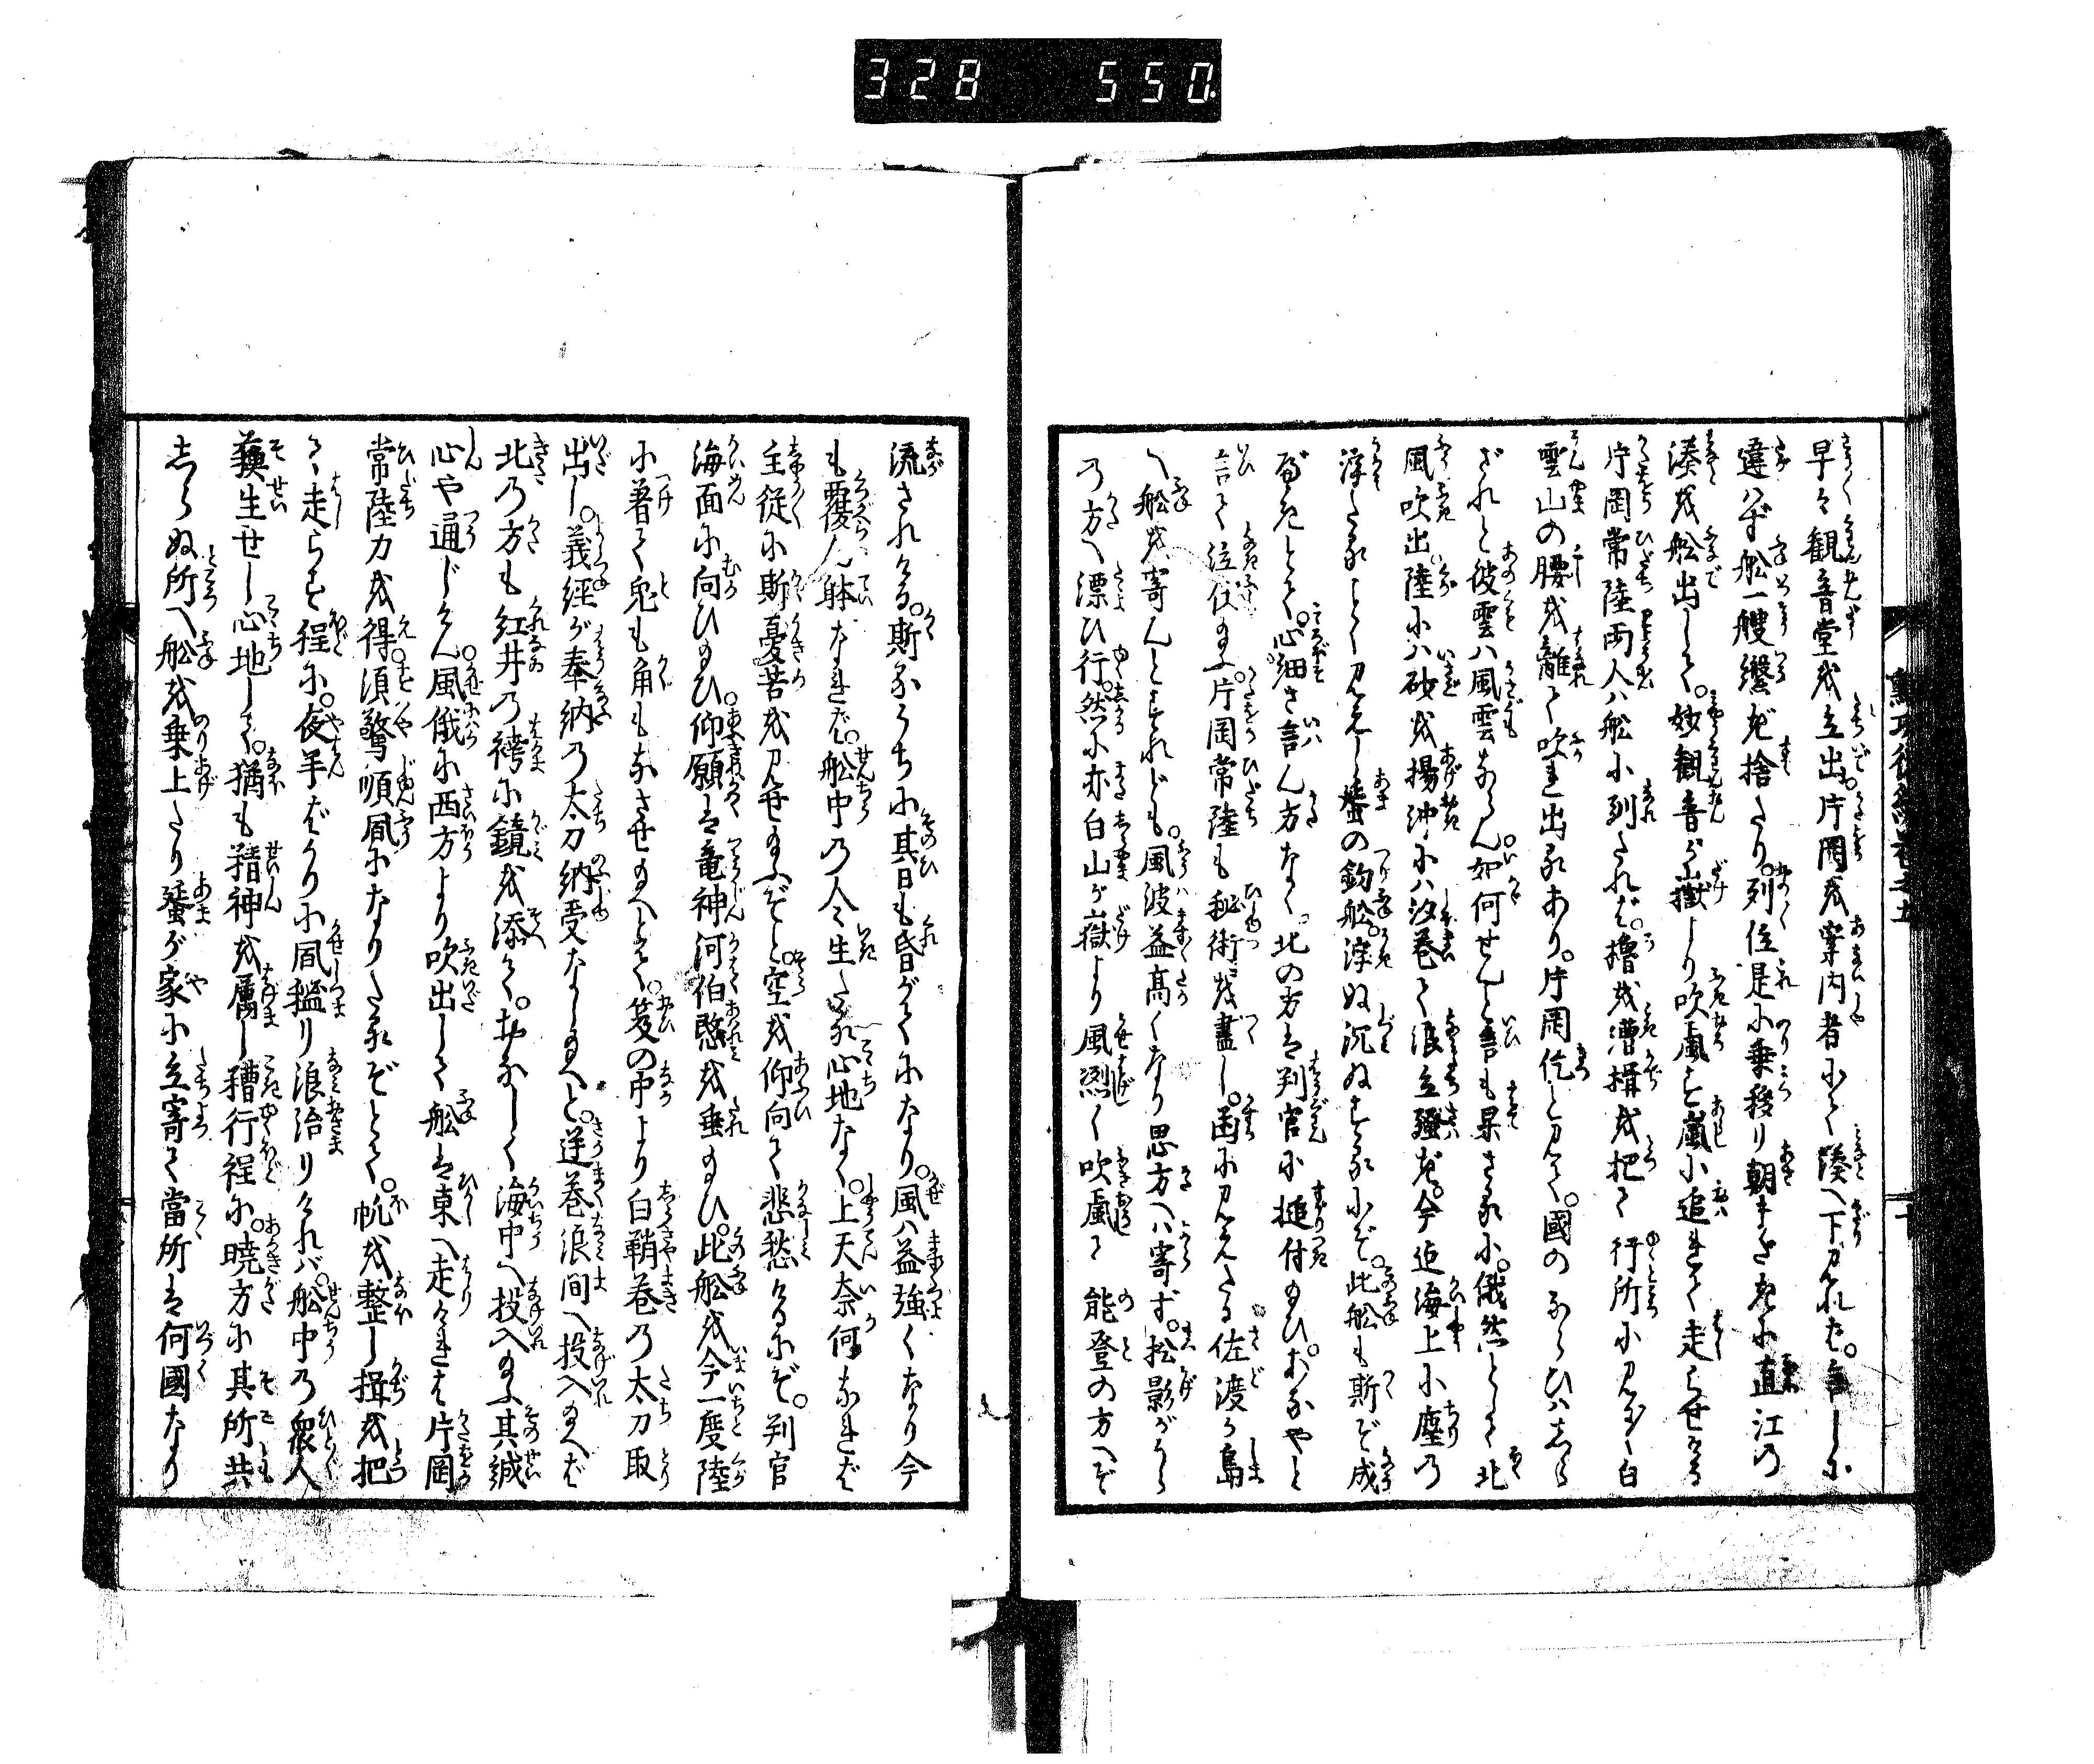 328 550
早々観音堂を立出。片岡を案内者にて湊へ下られた。言しに
違はず船一艘纜で捨たり。列位是に乗移り朝まだきに直江の
湊を船出して。妙観音が嶽より吹風を嵐に追れて走らせける
片岡常陸両人ハ船に馴たれば。櫓を漕揖を把て行所に見れば白
雲山の腰を離て吹れ出るあり。片岡仡と見て。國のならひハしら
ざれど彼雲ハ風雲ならん。如何せんと言も果さるに。俄然として北
風吹出陸にハ砂を揚沖にハ汐巻て浪立騒ば。今迄海上に塵の
浮たること見えし蜑の釣船。浮ぬ沈ぬするにぞ。此船も斯ぞ成
べきとて。心細さ言ん方なく。北の方は判官に縋付給ひ。あなやと
言て泣伏給ふ。片岡常陸も秘術を盡し。西に見えたる佐渡が島
へ船を寄んとすれども。風波益高くなり思方へハ寄ず。松影がうら
の方へ漂ひ行。然に亦白山が嶽より風烈く吹颪て能登の方へぞ
流されける。斯なるうちに其日も昏がたになり。風ハ益強くなり今
も覆ん躰なれば。船中の人々生たる心地なく。上天奈何なれば
主従に斯憂苦を見せ給ふぞと。空を仰向て悲愁けるにぞ。判官
海面に向ひ給ひ。仰願は竜神河伯愍を垂給ひ。此船を今一度陸
に着て兎も角もなさせ給へとて。笈の中より白鞘巻の太刀取
出し。義経が奉納の太刀納受なし給へと。逆巻浪間へ投入給へば
北の方も紅井の袴に鏡を添て。おなじく海中へ投入給ふ其誠
心や通じけん。風俄に西方より吹出して船は東へ走ければ片岡
常陸力を得。須驚順風になりたるぞとて。帆を整し揖を把
て走らす程に。夜半ばかりに風鎰り浪治りければ。船中の衆人
蘓生せし心地して。猶も精神を属し漕行程に。暁方に其所共
しらぬ所へ船を乗上たり蜑が家に立寄て當所は何國なり